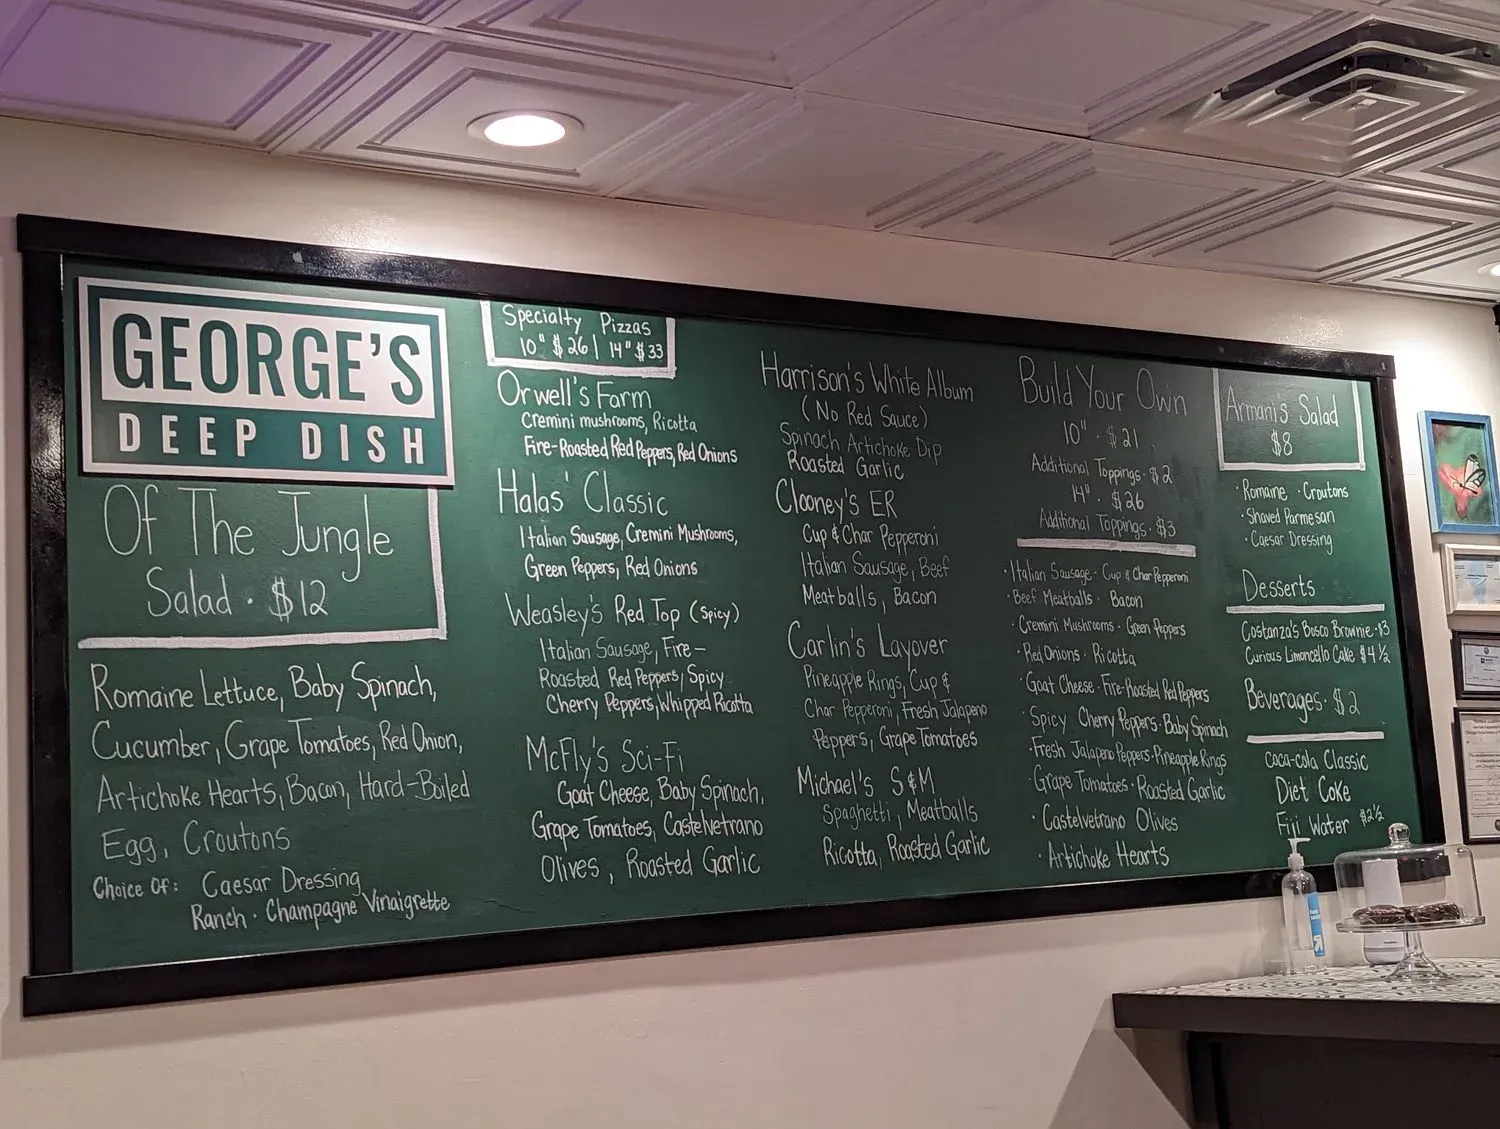 GEORGE'S
DEEP DISH
Of The Jungle
Salad · $12
Romaine Lettuce, Baby Spinach,
Cucumber, Grape Tomatoes, Red Onion,
Artichoke Hearts, Bacon, Hard-Boiled
Egg, Croutons
Choice Of: Caesar Dressing
Ranch · Champagne Vinaigrette
Specialty Pizzas
10" $26 | 14" $33
Orwell's Farm
Cremini mushrooms, Ricotta
Fire-Roasted Red Peppers, Red Onions
Halas' Classic
Italian Sausage, Cremini Mushrooms,
Green Peppers, Red Onions
Weasley's Red Top (Spicy)
Italian Sausage, Fire-
Roasted Red Peppers, Spicy
Cherry Peppers, Whipped Ricotta
McFly's Sci-Fi
Goat Cheese, Baby Spinach,
Grape Tomatoes, Castelvetrano
Olives, Roasted Garlic
Harrison's White Album
(No Red Sauce)
Spinach Artichoke Dip
Roasted Garlic
Clooney's ER
Cup & Char Pepperoni
Italian Sausage, Beef
Meatballs, Bacon
Carlin's Layover
Pineapple Rings, Cup &
Char Pepperoni, Fresh Jalapeno
Peppers, Grape Tomatoes
Michael's S&M
Spaghetti, Meatballs
Ricotta, Roasted Garlic
Build Your Own
10" · $21
Additional Toppings · $2
14" · $26
Additional Toppings · $3
· Italian Sausage · Cup & Char Pepperoni
· Beef Meatballs · Bacon
· Cremini Mushrooms · Green Peppers
· Red Onions · Ricotta
· Goat Cheese · Fire-Roasted Red Peppers
· Spicy Cherry Peppers · Baby Spinach
· Fresh Jalapeno Peppers · Pineapple Rings
· Grape Tomatoes · Roasted Garlic
· Castelvetrano Olives
· Artichoke Hearts
Armani's Salad
$8
· Romaine · Croutons
· Shaved Parmesan
· Caesar Dressing
Desserts
Costanza's Bosco Brownie · $3
Curious Limoncello Cake $4 ½
Beverages · $2
Coca-Cola Classic
Diet Coke
Fiji Water $2½